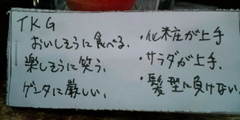 TKG
おいしそうに食べる。
楽しそうに笑う。
ゲンタに厳しい。
・化粧が上手
・サラダが上手
・髪型に負けない